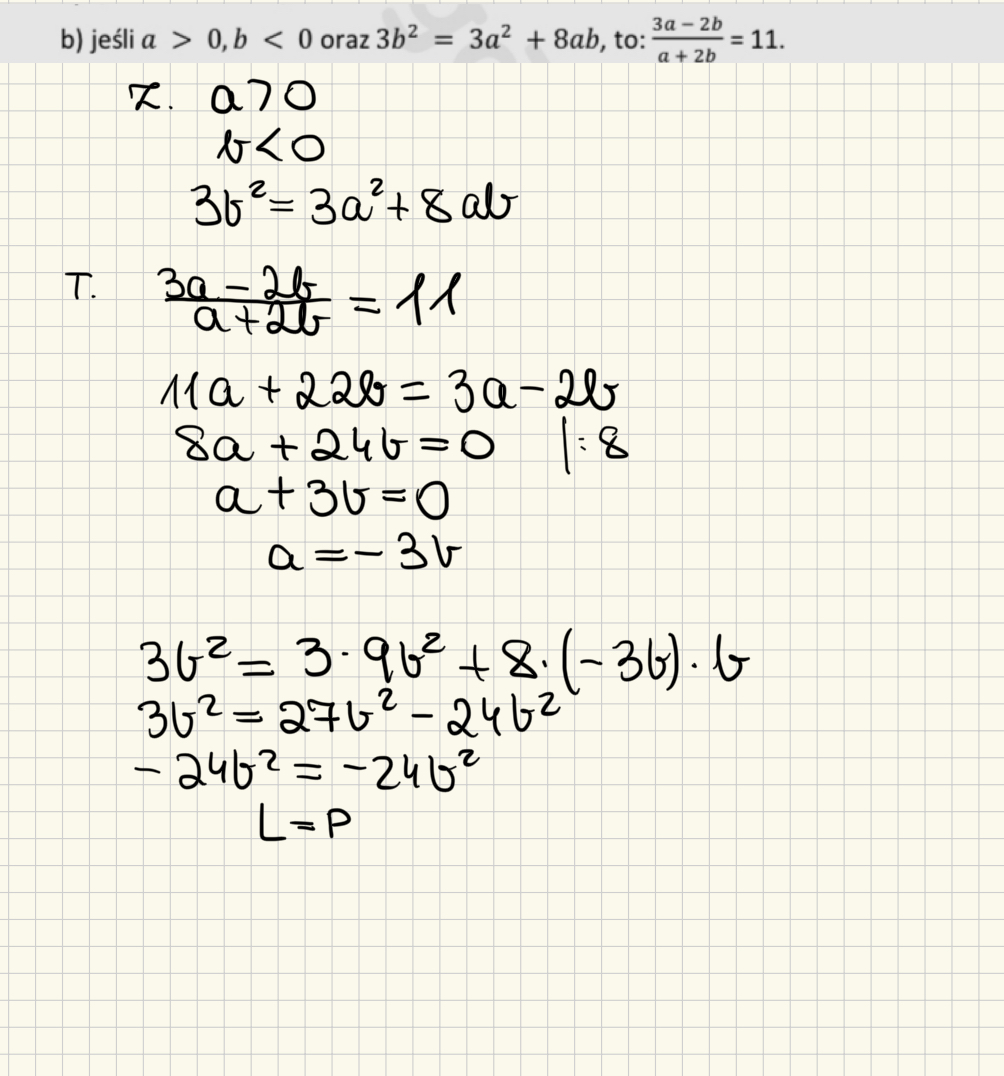 b) jeśli a > 0, b < 0 oraz 3b² = 3a² + 8ab, to: (3a − 2b)/(a + 2b) = 11.
Z. a > 0
b < 0
3b² = 3a² + 8ab
T. (3a − 2b)/(a + 2b) = 11
11a + 22b = 3a − 2b
8a + 24b = 0 |:8
a + 3b = 0
a = − 3b
3b² = 3 · 9b² + 8 · (−3b) · b
3b² = 27b² − 24b²
− 24b² = −24b²
L = P